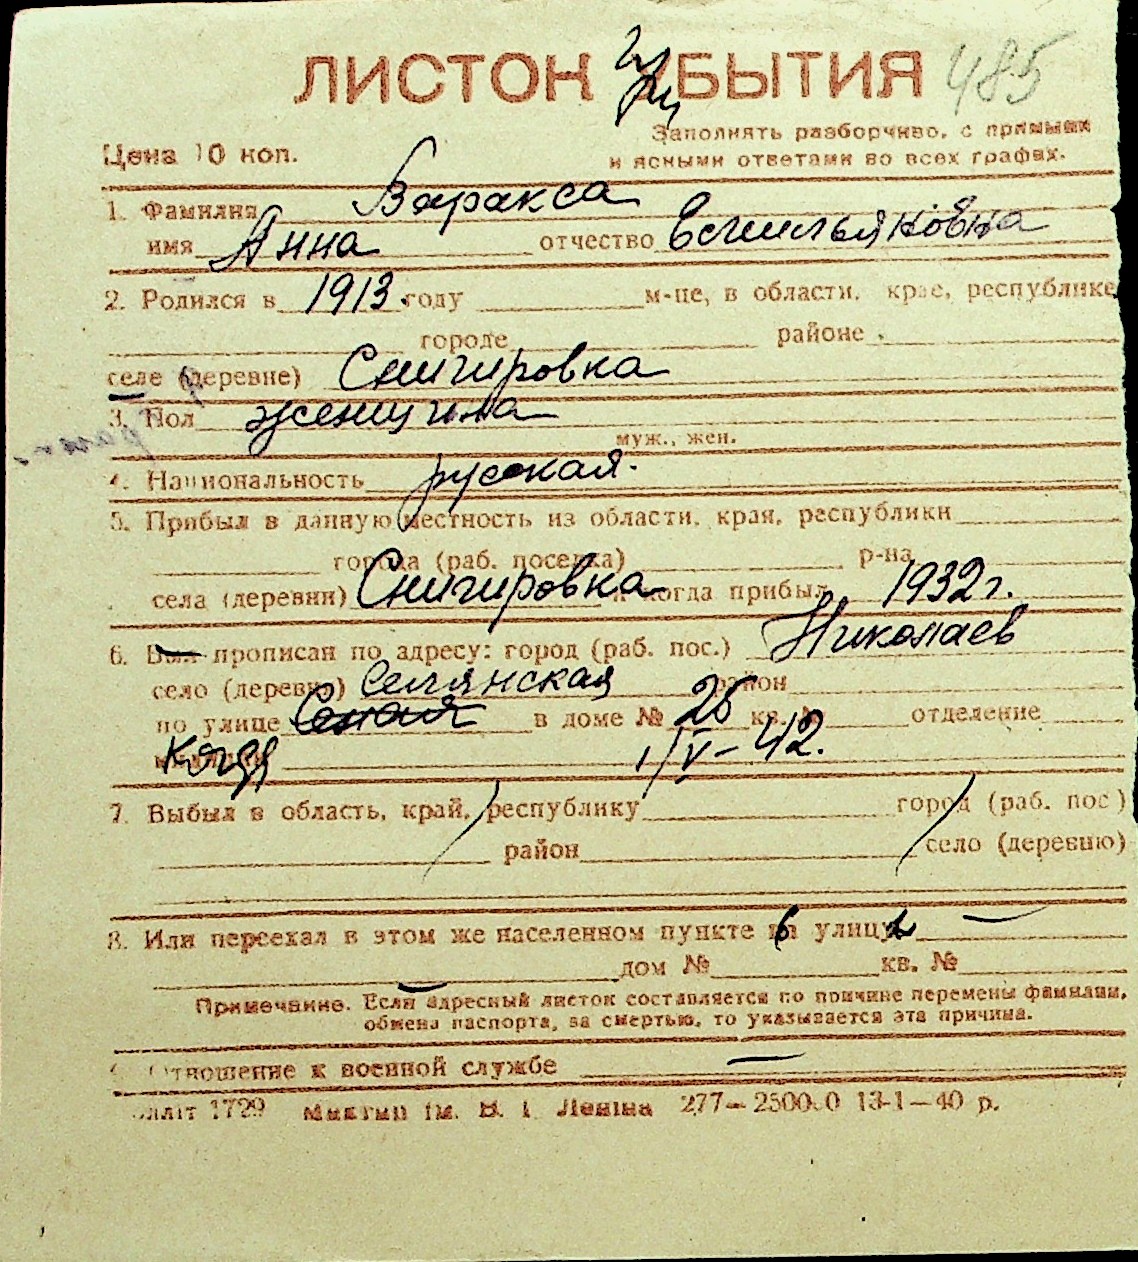 ЛИСТОК УБЫТИЯ 485
Заполнять разборчиво, с прямыми
Цена 10 коп. и ясными ответами во всех графах.
1. Фамилия Варакса
имя Анна отчество Емильяновна
2. Родился в 1913 году м-це, в области, крае, республике
городе районе
селе (деревне) Снигировка
3. Пол женщина
муж., жен.
4. Национальность русская.
5. Прибыл в данную местность из области, края, республики
города (раб. поселка) р-на
села (деревни) Снигировка и когда прибыл 1932 г.
6. Был прописан по адресу: город (раб. пос.) Николаев
село (деревня) Селянская район
по улице в доме № 25 кв. № отделение
когда 1/V-42.
7. Выбыл в область, край, республику город (раб. пос)
район село (деревню)
8. Или переехал в этом же населенном пункте на улицу
дом № кв. №
Примечание. Если адресный листок составляется по причине перемены фамилии,
обмена паспорта, за смертью, то указывается эта причина.
Отношение к военной службе
1729 ім. В. І. Леніна 277—25000 13-1—40 р.